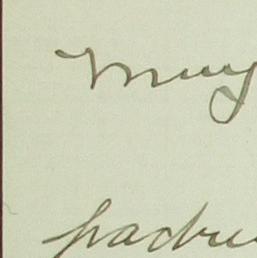 Muy
padre